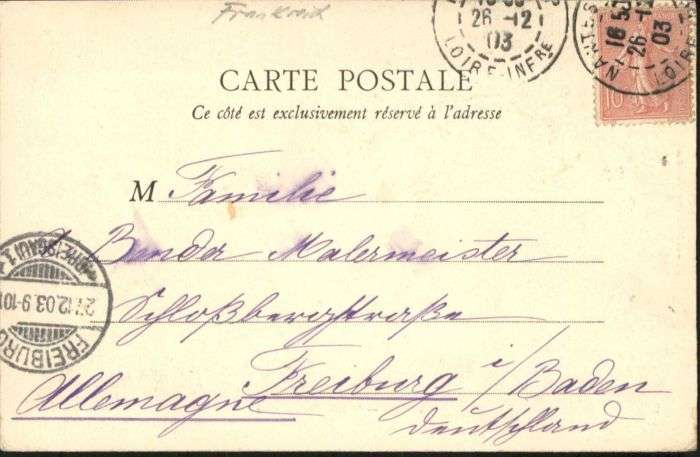 Frankreich
26 -12
03
LOIRE-INFRE
NANTES
16
26 -12
03
LOIRE
10
CARTE POSTALE
Ce côté est exclusivement réservé à l'adresse
M Familie
Bender Malermeister
Schloßbergstraße
Freiburg i/Baden
Allemagne
Deutschland
27.12.03.9-10
FREIBURG